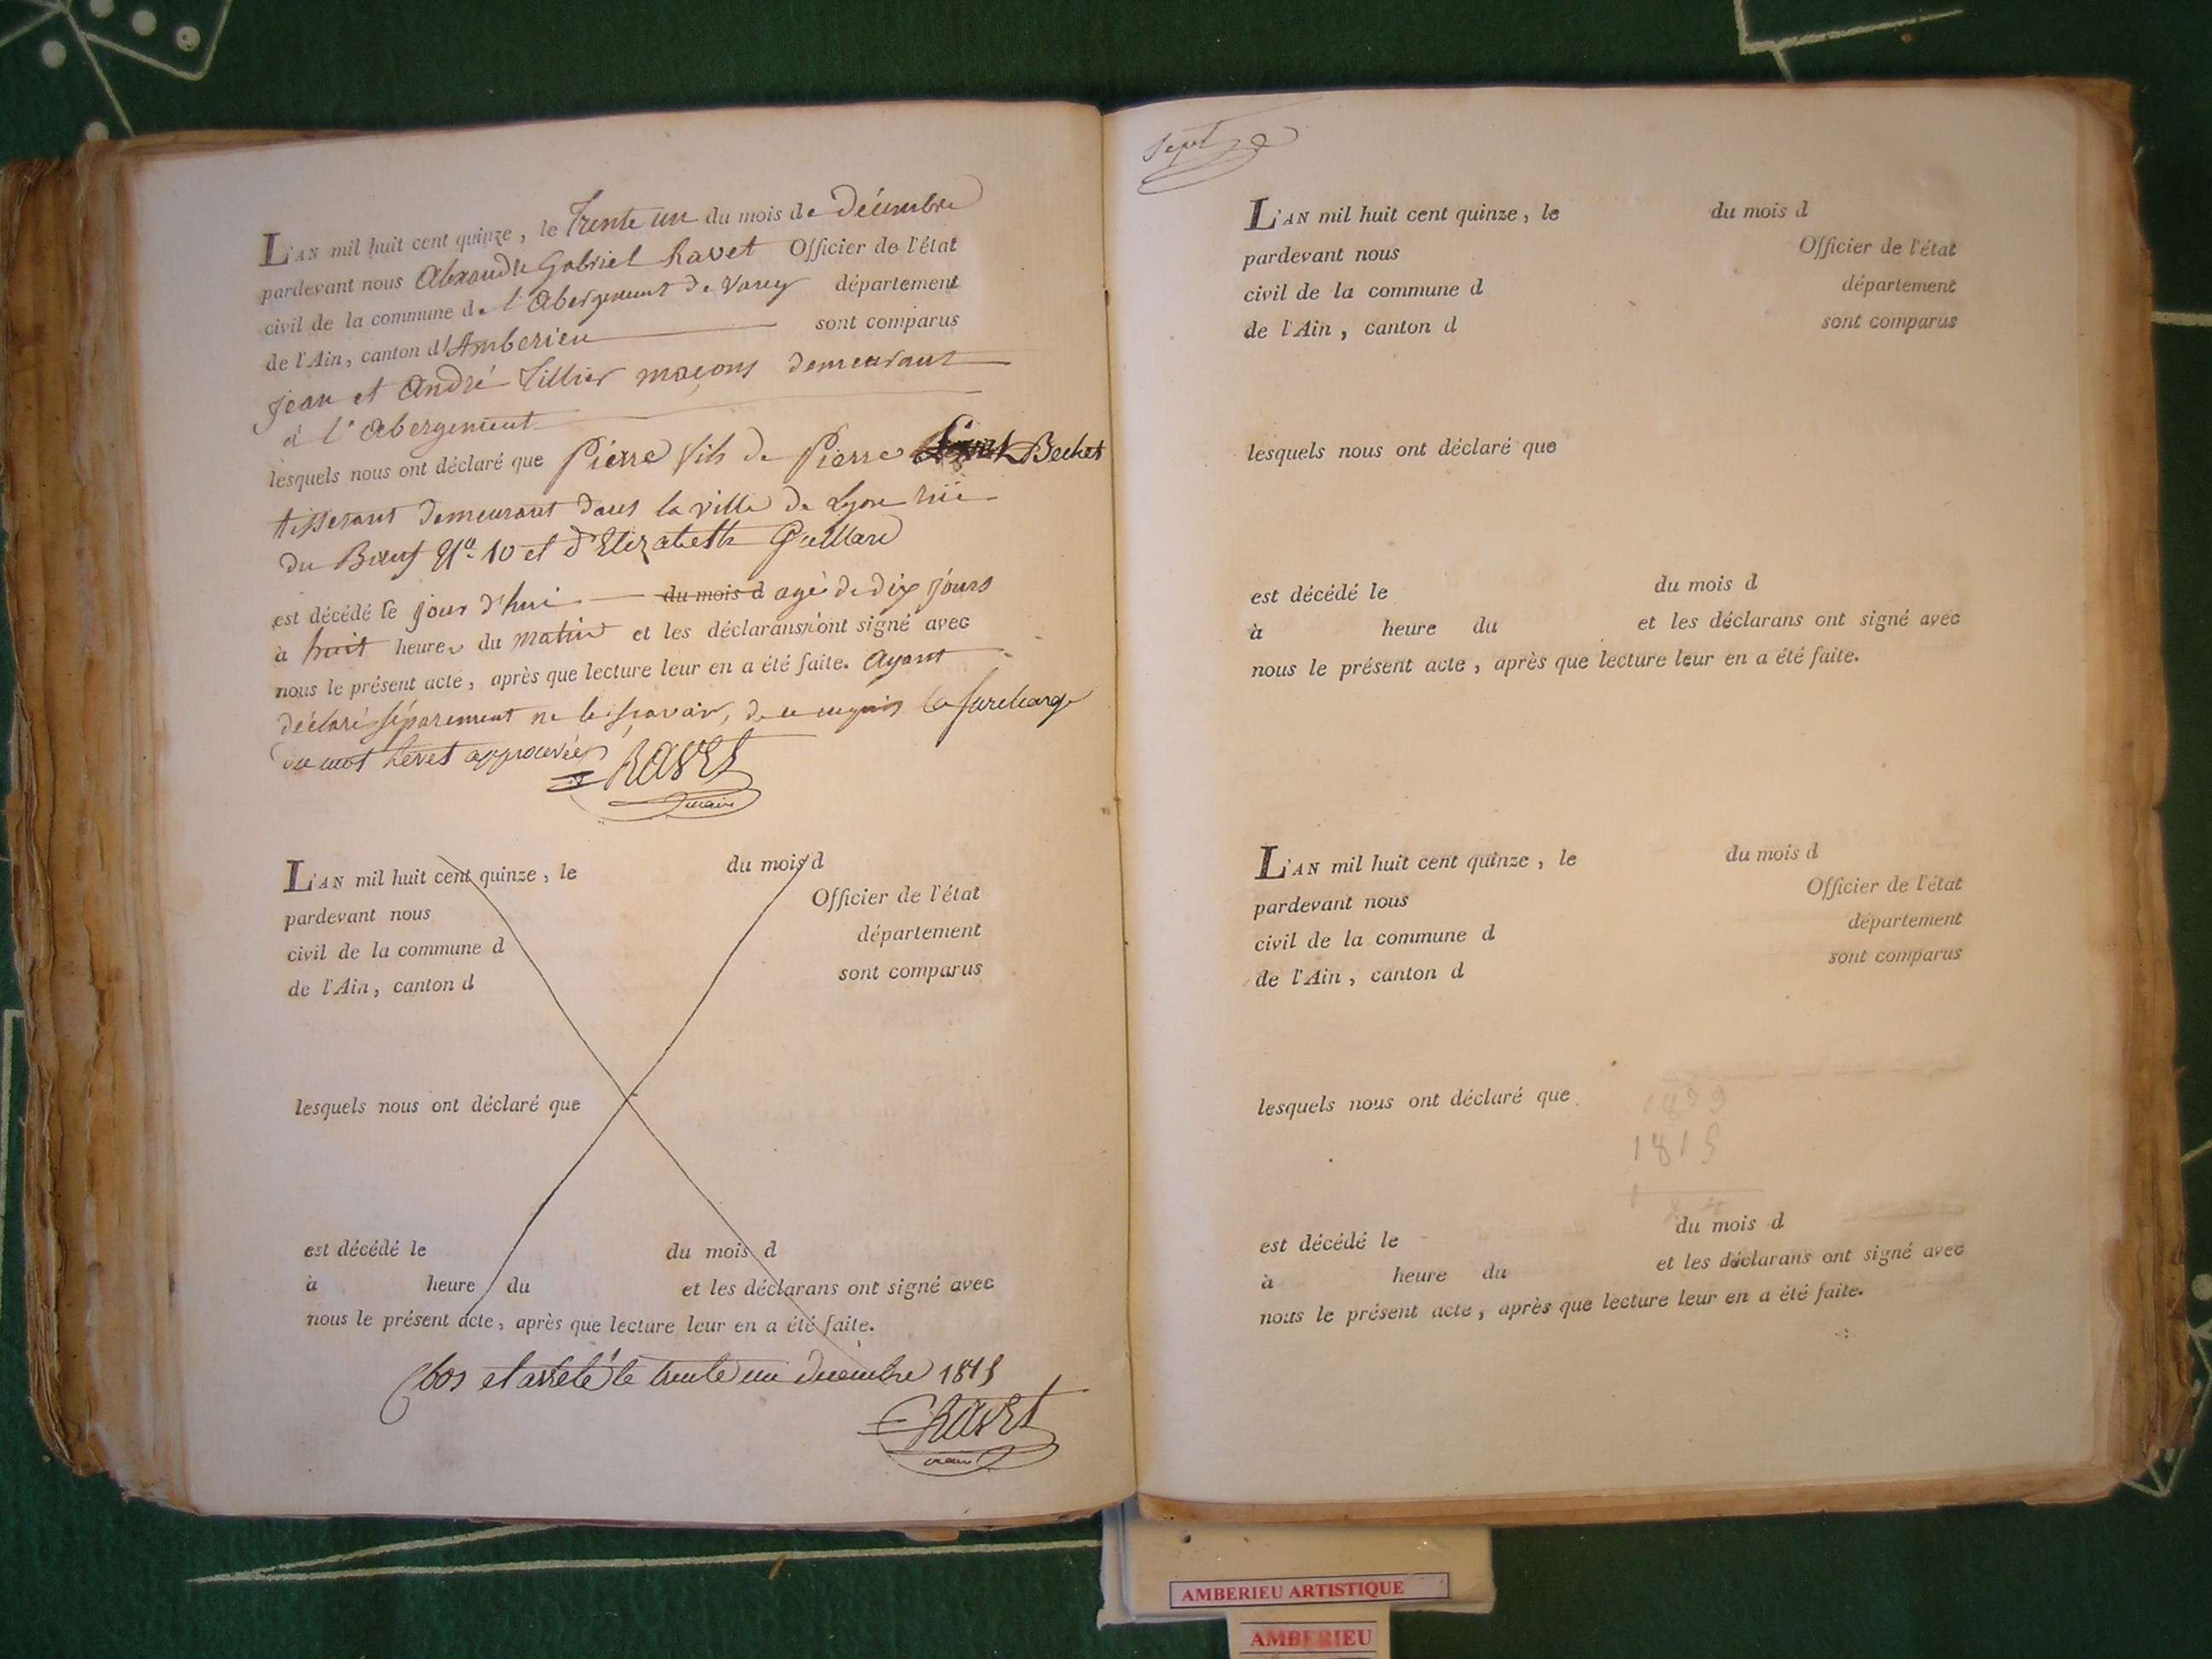 L'AN mil huit cent quinze, le Trente un du mois de décembre
pardevant nous Alexandre Gabriel Ravet Officier de l'état
civil de la commune de l'Abergement de Varey département
de l'Ain, canton d'Amberieu sont comparus
Jean et André Tillier maçons demeurant
à l'Abergement
lesquels nous ont déclaré que Pierre fils de Pierre Bechet
tisserant demeurant dans la ville de Lyon rüe
du Bœuf N° 10 et d'Elizabeth Guillard
est décédé le jour d'hui du mois d agé de dix jours
à huit heures du matin et les déclarans ont signé avec
nous le présent acte, après que lecture leur en a été faite. Ayant
déclaré séparement ne le sçavoir, de ce requis la surcharge
du mot approuvée
RAVET
maire
L'AN mil huit cent quinze, le du mois d
pardevant nous Officier de l'état
civil de la commune d département
de l'Ain, canton d sont comparus
lesquels nous ont déclaré que
est décédé le du mois d
à heure du et les déclarans ont signé avec
nous le présent acte, après que lecture leur en a été faite.
Clos et arreté le trente un decembre 1815
RAVET
maire
Sept
L'AN mil huit cent quinze, le du mois d
pardevant nous Officier de l'état
civil de la commune d département
de l'Ain, canton d sont comparus
lesquels nous ont déclaré que
est décédé le du mois d
à heure du et les déclarans ont signé avec
nous le présent acte, après que lecture leur en a été faite.
L'AN mil huit cent quinze, le du mois d
pardevant nous Officier de l'état
civil de la commune d département
de l'Ain, canton d sont comparus
lesquels nous ont déclaré que
1815
est décédé le du mois d
à heure du et les déclarans ont signé avec
nous le présent acte, après que lecture leur en a été faite.
AMBERIEU ARTISTIQUE
AMBERIEU